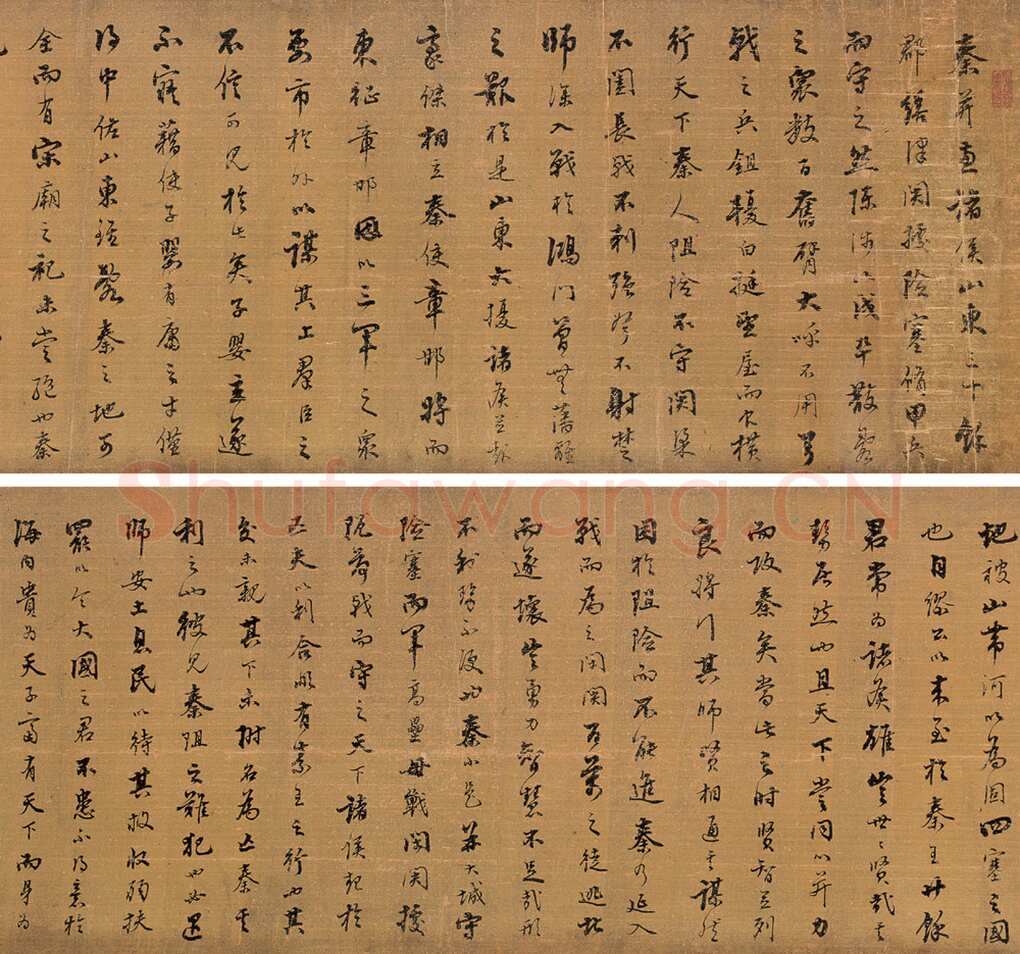 秦并兼諸侯山東三十餘
郡繕津関據險塞脩甲兵
而守之然陳涉以戍卒散亂
之衆數百奮臂大呼不用弓
戟之兵鉏耰白挺望屋而食橫
行天下秦人阻險不守関梁
不闔長戟不刺強弩不射楚
師深入戰於鴻門曾無藩籬
之艱於是山東大擾諸侯並起
豪傑相立秦使章邯將而
東征章邯因以三軍之衆
要市於外以謀其上羣臣之
不信可見於此矣子嬰立遂
不寤藉使子嬰有庸主才僅
得中佐山東雖亂秦之地可
全而有宗廟之祀未當絕也秦
地被山帶河以為固四塞之國
也自繆公以來至於秦王廿餘
君常為諸侯雄豈世々賢哉其
勢居然也且天下嘗同心并力
而攻秦矣當此之時賢智並列
良將行其師賢相通其謀然
困於阻險而不能進秦乃延入
戰而為之開関百萬之徒逃北
而遂壞豈勇力智慧不足哉形
不利勢不便也秦小邑并大城守
險塞而軍高壘毋戰閉関據
阨荷戟而守之天下諸侯起於
匹夫以利合非有素王之行也其
交未親其下未附名為亡秦其
利之也彼見秦阻之難犯也必退
師安土息民以待其救收弱扶
罷以令大國之君不患不得意於
海內貴為天子富有天下而身為
Shufawang.CN